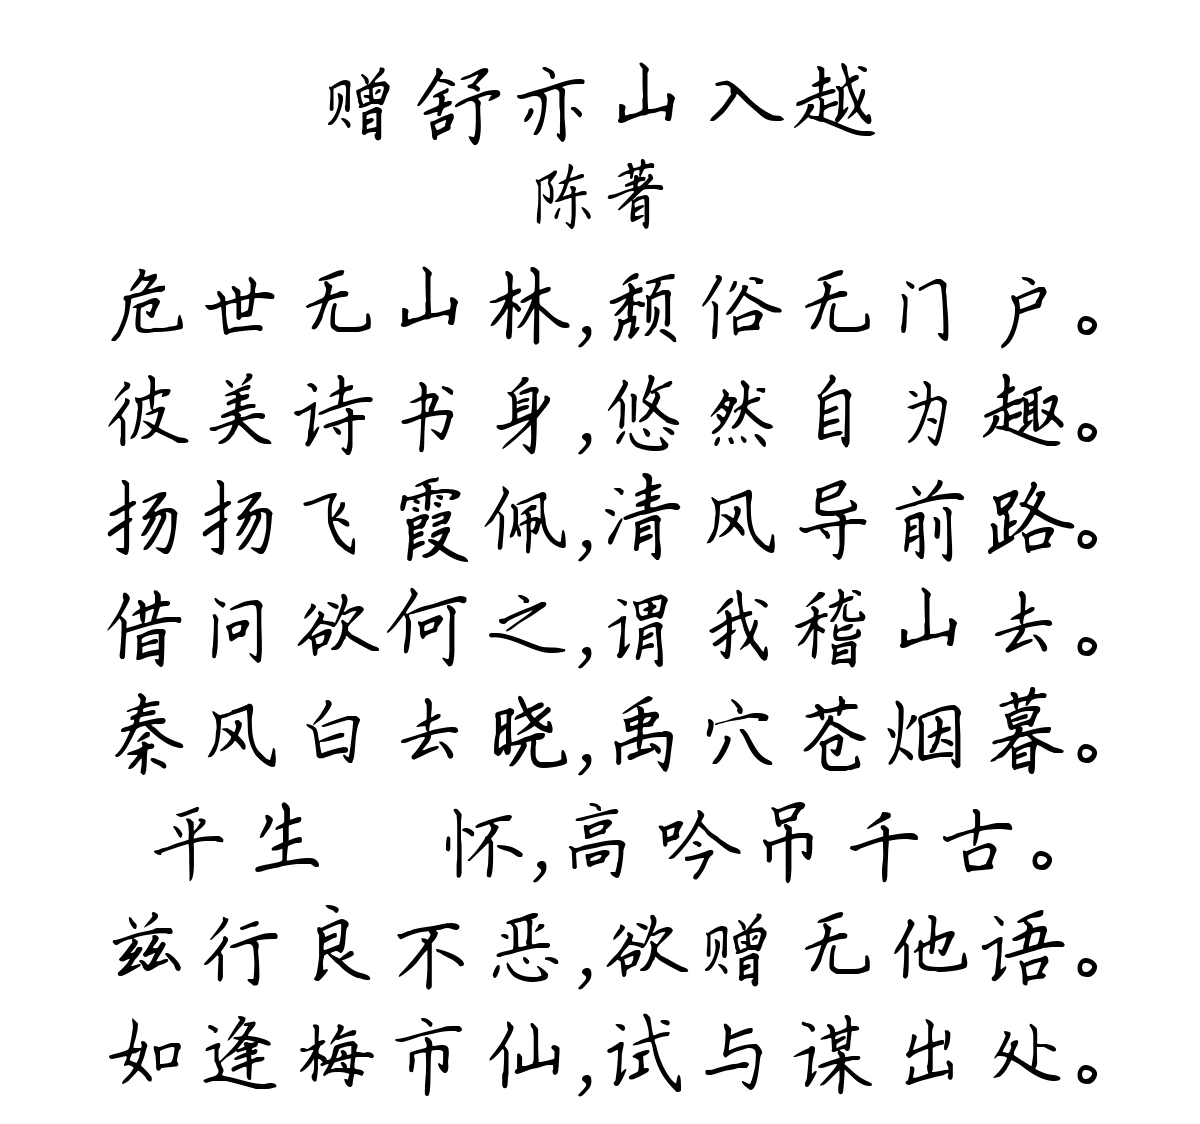 赠舒亦山入越
陈著
危世无山林,颓俗无门户。
彼美诗书身,悠然自为趣。
扬扬飞霞佩,清风导前路。
借问欲何之,谓我稽山去。
秦风白去晓,禹穴苍烟暮。
平生 怀,高吟吊千古。
兹行良不恶,欲赠无他语。
如逢梅市仙,试与谋出处。